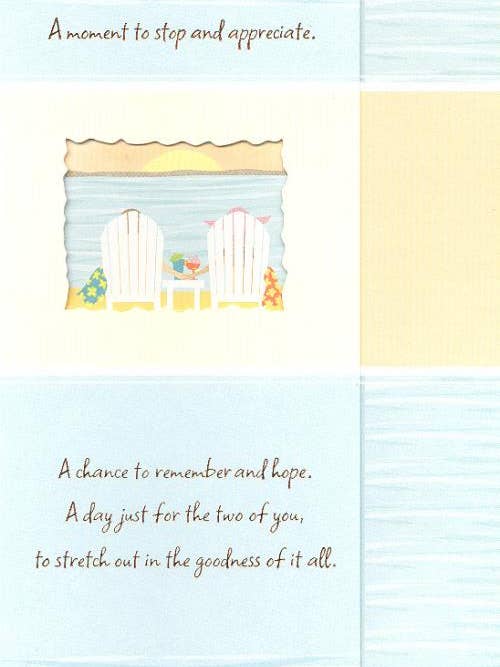 A moment to stop and appreciate.
A chance to remember and hope.
A day just for the two of you,
to stretch out in the goodness of it all.